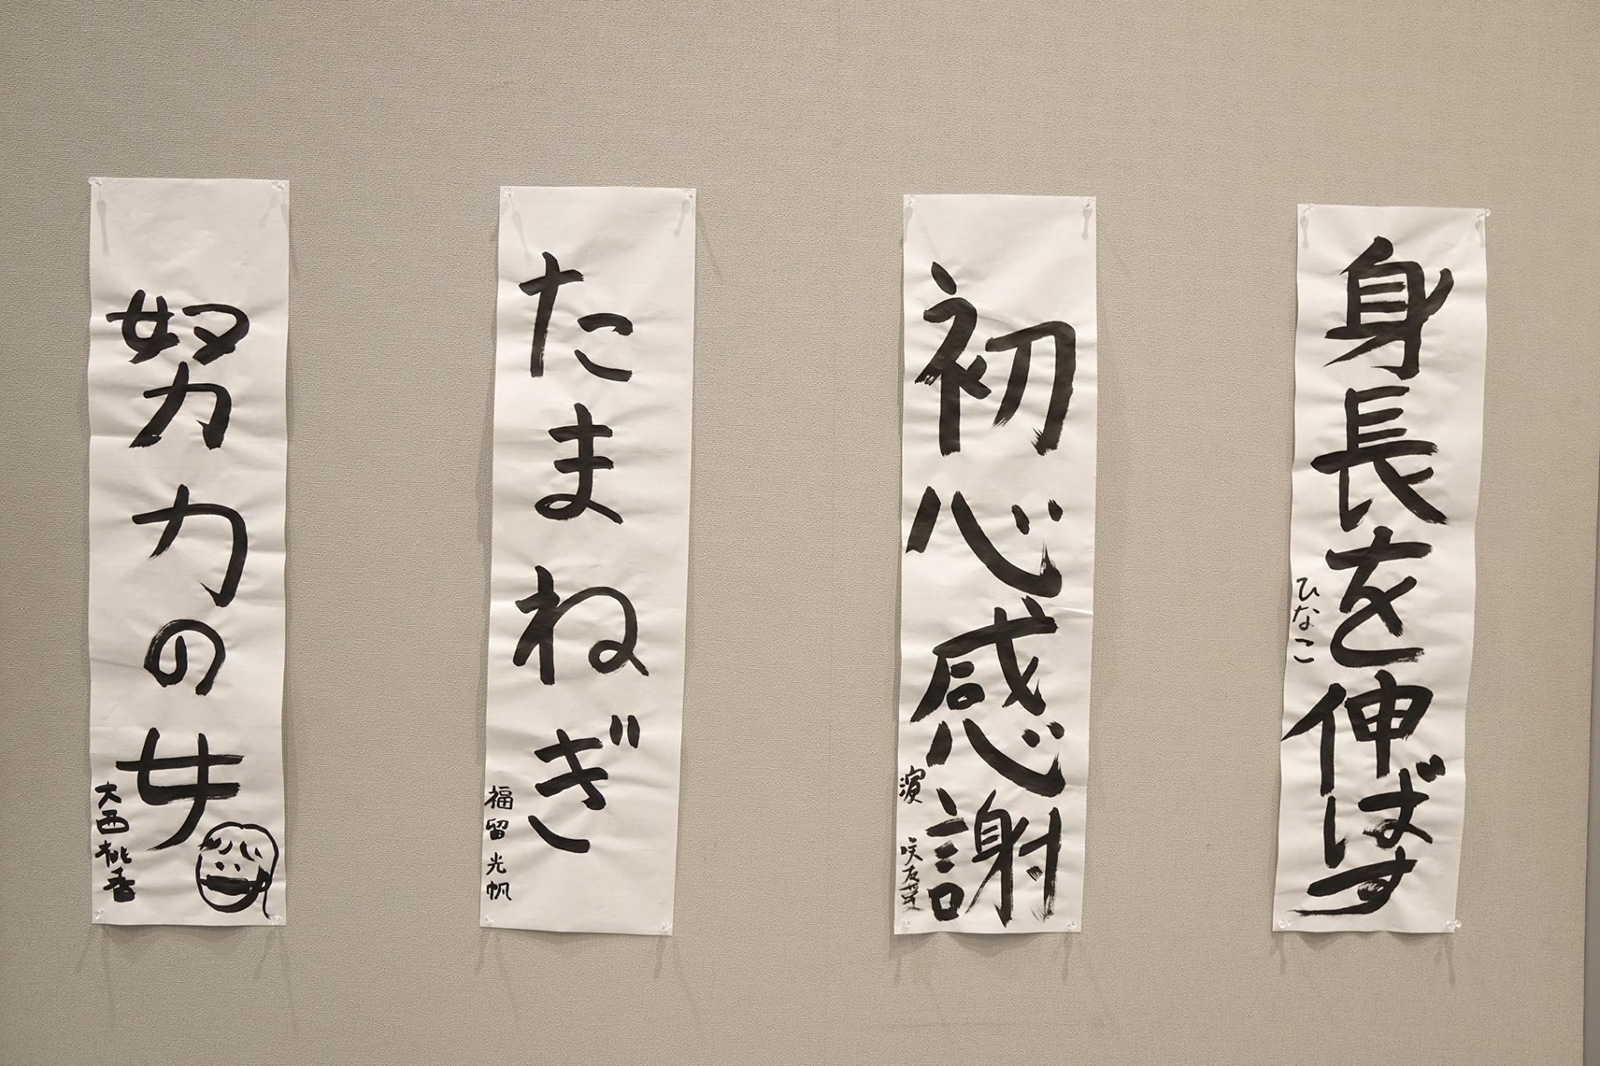 身長を伸ばす
ひなこ
初心感謝
濵 咲友菜
たまねぎ
福留光帆
努力の女
大西桃香